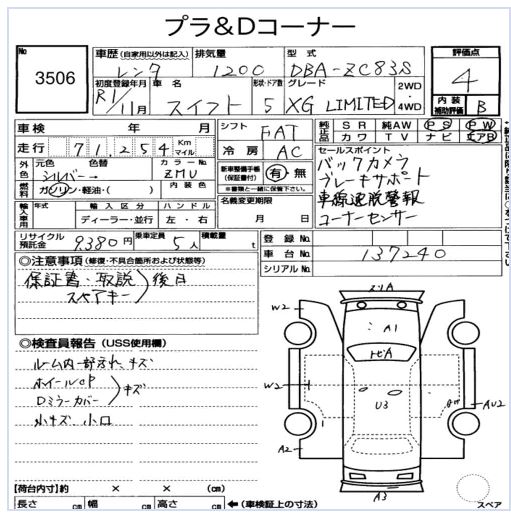 プラ&Dコーナー
No
3506
車歴 (自家用以外は記入)
レンタ
排気量
1200
型式
DBA-ZC83S
評価点
4
初度登録年月
R1/11月
車名
スイフト
形状・ドア数
5
グレード
XG LIMITED
2WD
・
4WD
内装
補助評価
B
車検 年 月
走行 71,254 Km マイル
シフト
FAT
冷房
AC
純正品
SR 純AW PS PW
カワ TV ナビ エアB
外色
元色 色替
シルバー→
カラーNo
ZMU
燃料
ガソリン・軽油・( )
内装色
新車整備手帳
(保証書付)
有・無
※書類と一緒に保管下さい。
セールスポイント
バックカメラ
ブレーキサポート
車線逸脱警報
コーナーセンサー
輸入車用
年式
輸入区分
ハンドル
ディーラー・並行
左・右
名義変更期限
月 日
リサイクル預託金
9380円
乗車定員
5人
積載量
t
登録No
車台No
137240
シリアルNo
◎注意事項 (修復・不具合箇所および状態等)
保証書・取説
スペアキー
後日
◎検査員報告 (USS使用欄)
ルーム内一部汚れ、キズ
ホイールcap
Dミラーカバー
キズ
小キズ 小凹
W2
A1
トビA
W2
U3
AU2
A2
A3
【荷台内寸】約 × × (cm)
長さ cm 幅 cm 高さ cm ←(車検証上の寸法)
スペア